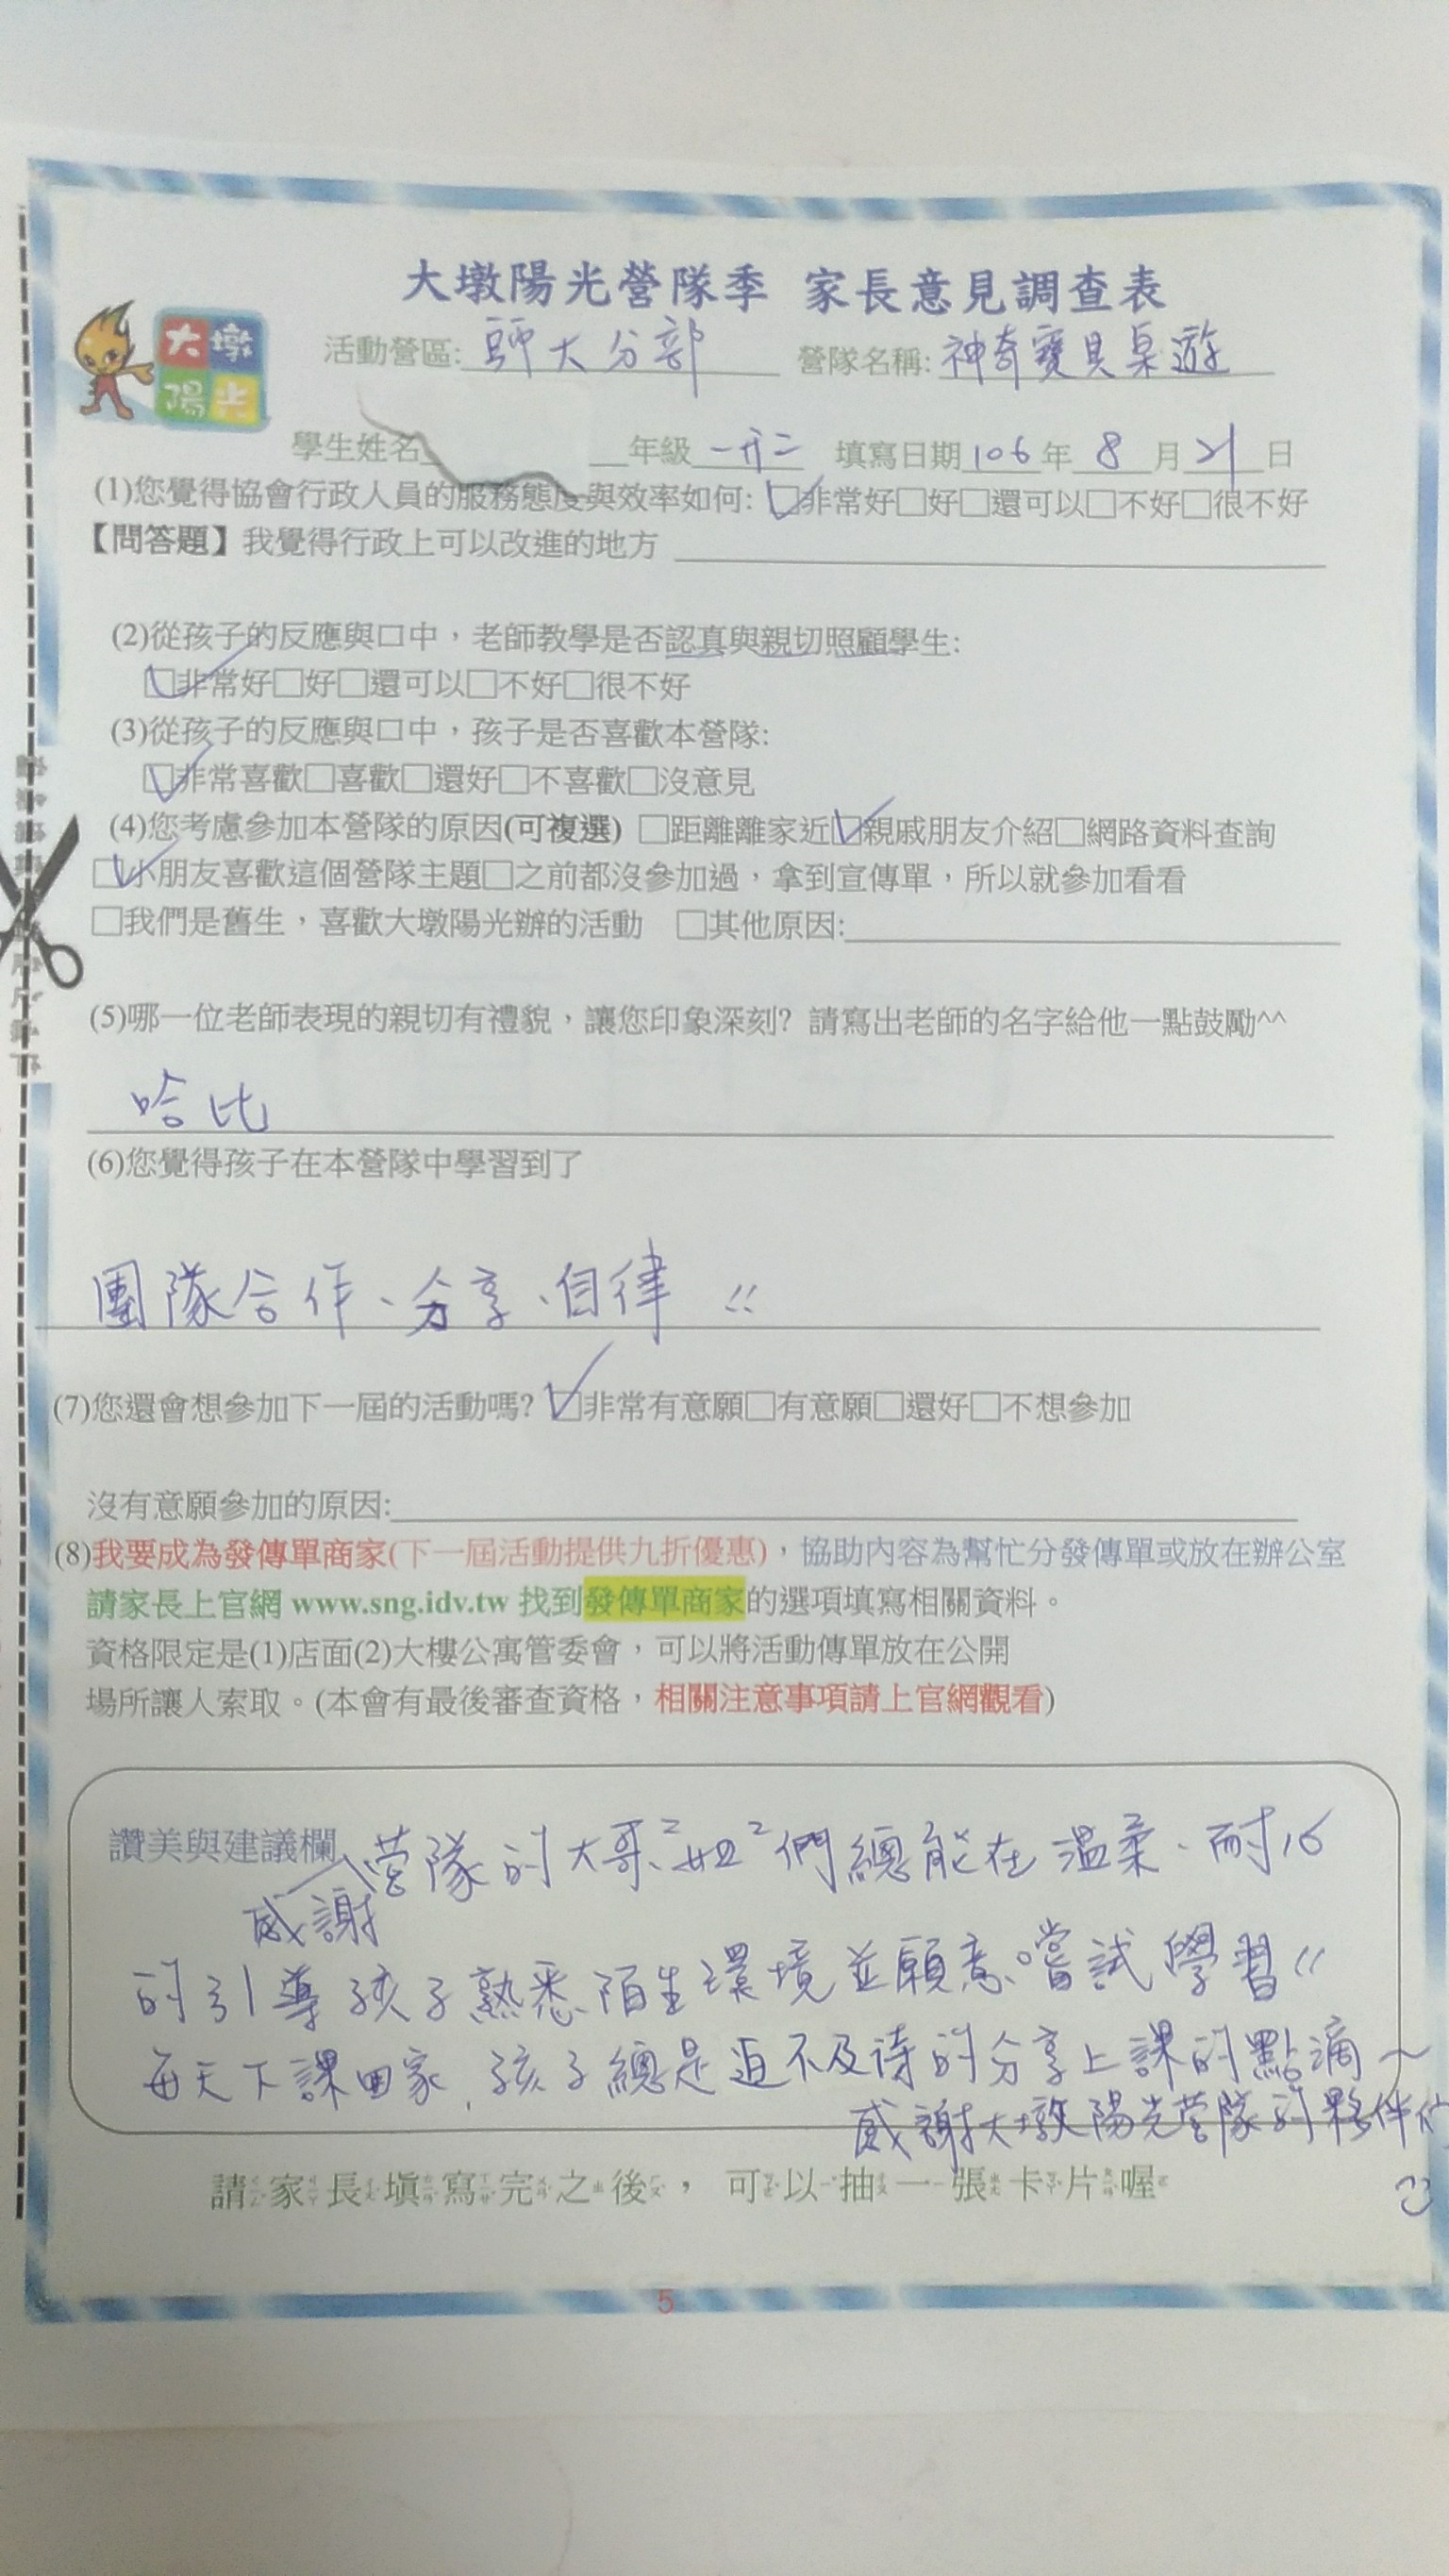 大墩陽光營隊季 家長意見調查表
大墩陽光
活動營區: 師大分部 營隊名稱: 神奇寶貝桌遊
學生姓名 年級 一升二 填寫日期 106 年 8 月 21 日
(1)您覺得協會行政人員的服務態度與效率如何: ☑非常好□好□還可以□不好□很不好
【問答題】我覺得行政上可以改進的地方
(2)從孩子的反應與口中，老師教學是否認真與親切照顧學生:
☑非常好□好□還可以□不好□很不好
(3)從孩子的反應與口中，孩子是否喜歡本營隊:
☑非常喜歡□喜歡□還好□不喜歡□沒意見
(4)您考慮參加本營隊的原因(可複選) □距離離家近☑親戚朋友介紹□網路資料查詢
☑小朋友喜歡這個營隊主題□之前都沒參加過，拿到宣傳單，所以就參加看看
□我們是舊生，喜歡大墩陽光辦的活動 □其他原因:
(5)哪一位老師表現的親切有禮貌，讓您印象深刻? 請寫出老師的名字給他一點鼓勵^^
哈比
(6)您覺得孩子在本營隊中學習到了
團隊合作、分享、自律!!
(7)您還會想參加下一屆的活動嗎? ☑非常有意願□有意願□還好□不想參加
沒有意願參加的原因:
(8)我要成為發傳單商家(下一屆活動提供九折優惠)，協助內容為幫忙分發傳單或放在辦公室
請家長上官網 www.sng.idv.tw 找到發傳單商家的選項填寫相關資料。
資格限定是(1)店面(2)大樓公寓管委會，可以將活動傳單放在公開
場所讓人索取。(本會有最後審查資格，相關注意事項請上官網觀看)
讚美與建議欄 感謝營隊的大哥²、姐²們總能在溫柔、耐心
的引導孩子熟悉陌生環境並願意嚐試學習!!
每天下課回家，孩子總是迫不及待的分享上課的點滴~
感謝大墩陽光營隊的夥伴們
請家長填寫完之後，可以抽一張卡片喔
5